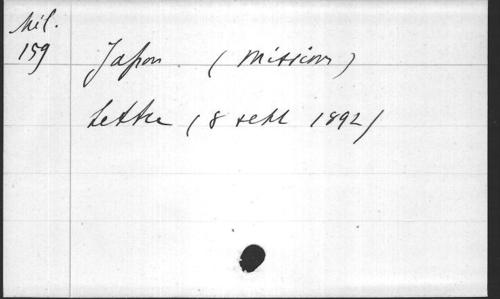 Mél.
159
Japon. (Missions)
Lettre (8 sept 1892)